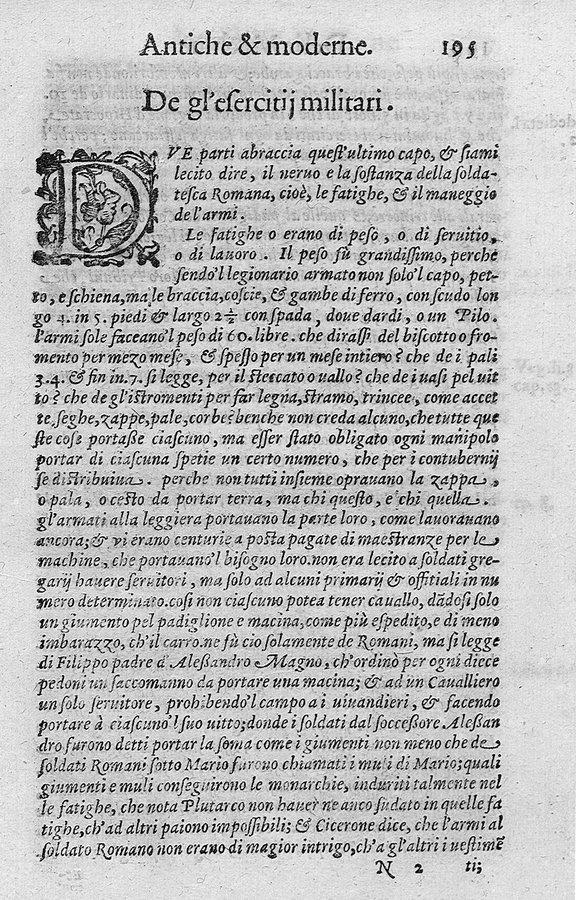 Antiche & moderne. 195
De gl'esercitij militari.
DVE parti abraccia quest'ultimo capo, & siami
lecito dire, il neruo e la sostanza della solda-
tesca Romana, cioè, le fatighe, & il maneggio
de l'armi.
Le fatighe o erano di peso, o di seruitio,
o di lauoro. Il peso fù grandissimo, perche
sendo'l legionario armato non solo'l capo, pet-
to, e schiena, ma le braccia, coscie, & gambe di ferro, con scudo lon
go 4. in 5. piedi & largo 2½ con spada, doue dardi, o un Pilo.
l'armi sole faceano'l peso di 60. libre. che dirassi del biscotto o fro-
mento per mezo mese, & spesso per un mese intiero? che de i pali
3.4. & fin in.7. si legge, per il steccato o uallo? che de i uasi pel uit
to? che de gl'istromenti per far legna, stramo, trincee, come accet
te, seghe, zappe, pale, corbe? benche non creda alcuno, che tutte que
ste cose portasse ciascuno, ma esser stato obligato ogni manipolo
portar di ciascuna spetie un certo numero, che per i contubernij
se distribuiua. perche non tutti insieme oprauano la zappa,
o pala, o cesto da portar terra, ma chi questo, e chi quella.
gl'armati alla leggiera portauano la parte loro, come lauorauano
ancora; & vi erano centurie a posta pagate di maestranze per le
machine, che portauano'l bisogno loro. non era lecito a soldati gre-
garij hauere seruitori, ma solo ad alcuni primarij & offitiali in nu
mero determinato. cosi non ciascuno potea tener cauallo, dādosi solo
un giumento pel padiglione e macina; come più espedito, e di meno
imbarazzo, ch'il carro. ne fù cio solamente de Romani, ma si legge
di Filippo padre d'Alessandro Magno, ch'ordinò per ogni diece
pedoni un saccomanno da portare una macina; & ad un Caualliero
un solo seruitore, prohibendo'l campo a i uiuandieri, & facendo
portare à ciascuno'l suo uitto; donde i soldati dal soccessore Alessan
dro furono detti portar la soma come i giumenti non meno che de
soldati Romani sotto Mario furono chiamati i muli di Mario; quali
giumenti e muli conseguirono le monarchie, induriti talmente nel
le fatighe, che nota Plutarco non hauer ne anco sudato in quelle fa
tighe, ch'ad altri paiono impossibili; & Cicerone dice, che l'armi al
soldato Romano non erano di magior intrigo, ch'a gl'altri i uestimē
N 2 ti;